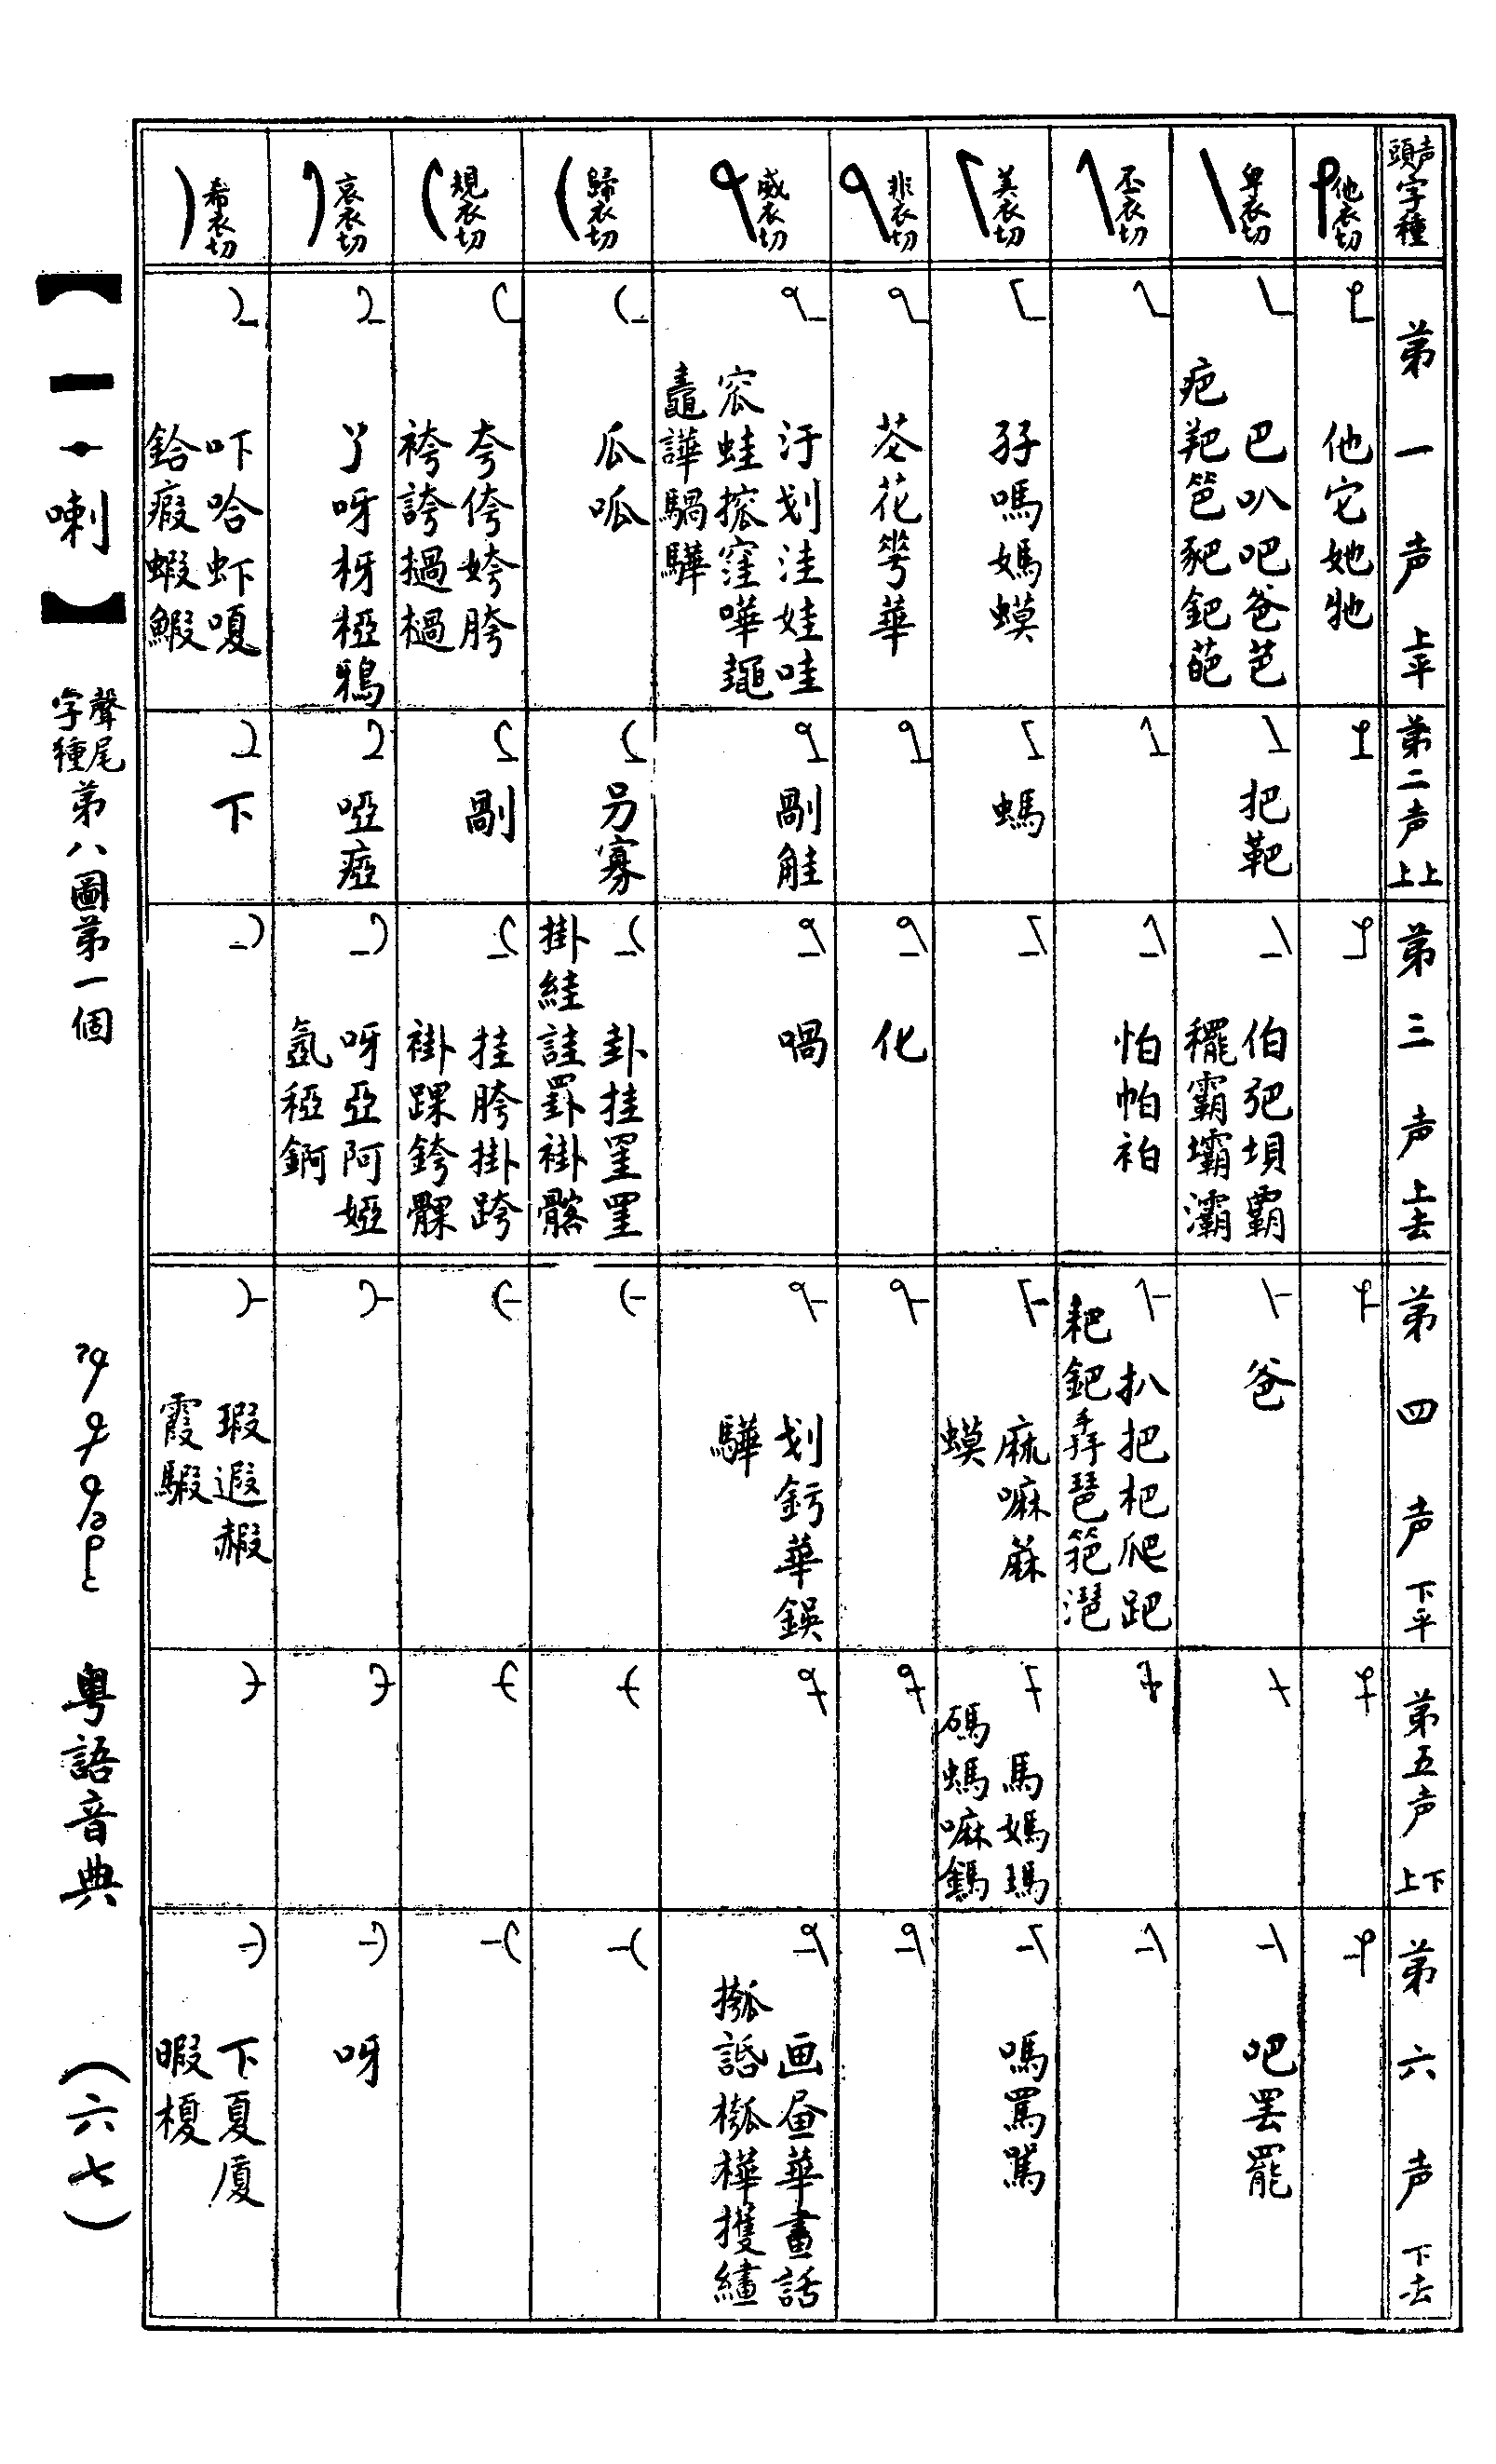 声頭字種
第一声 上平
第二声 上上
第三声 上去
第四声 下平
第五声 下上
第六声 下去
他衣切
他它她牠
卑衣切
巴叭吧爸芭
疤羓笆豝鈀葩
把靶
伯弝垻覇
䆉霸壩灞
爸
吧罢罷
丕衣切
怕帕袙
扒把杷爬跁
耙鈀掱琶筢潖
美衣切
孖嗎媽蟆
螞
麻嘛蔴
蟆
馬媽瑪
碼螞嘛鎷
嗎罵駡
非衣切
苍花芲華
化
威衣切
汙划洼娃哇
窊蛙搲窪嘩䵷
鼃譁騧驊
剮觟
喎
划釫華鋘
驊
画畫華畫話
摦諙槬樺擭繣
歸衣切
瓜呱
叧寡
卦挂罣罫
掛絓詿罫褂髂
規衣切
夸侉姱胯
袴誇撾檛
剮
挂胯掛跨
褂踝銙髁
哀衣切
丫呀枒椏鴉
啞瘂
呀亞阿婭
氬稏錒
呀
希衣切
吓哈虾嗄
鉿瘕蝦鰕
下
瑕遐赮
霞騢
下夏廈
暇榎
【一·喇】
聲尾字種第八圖第一個
粵語音典
（六七）